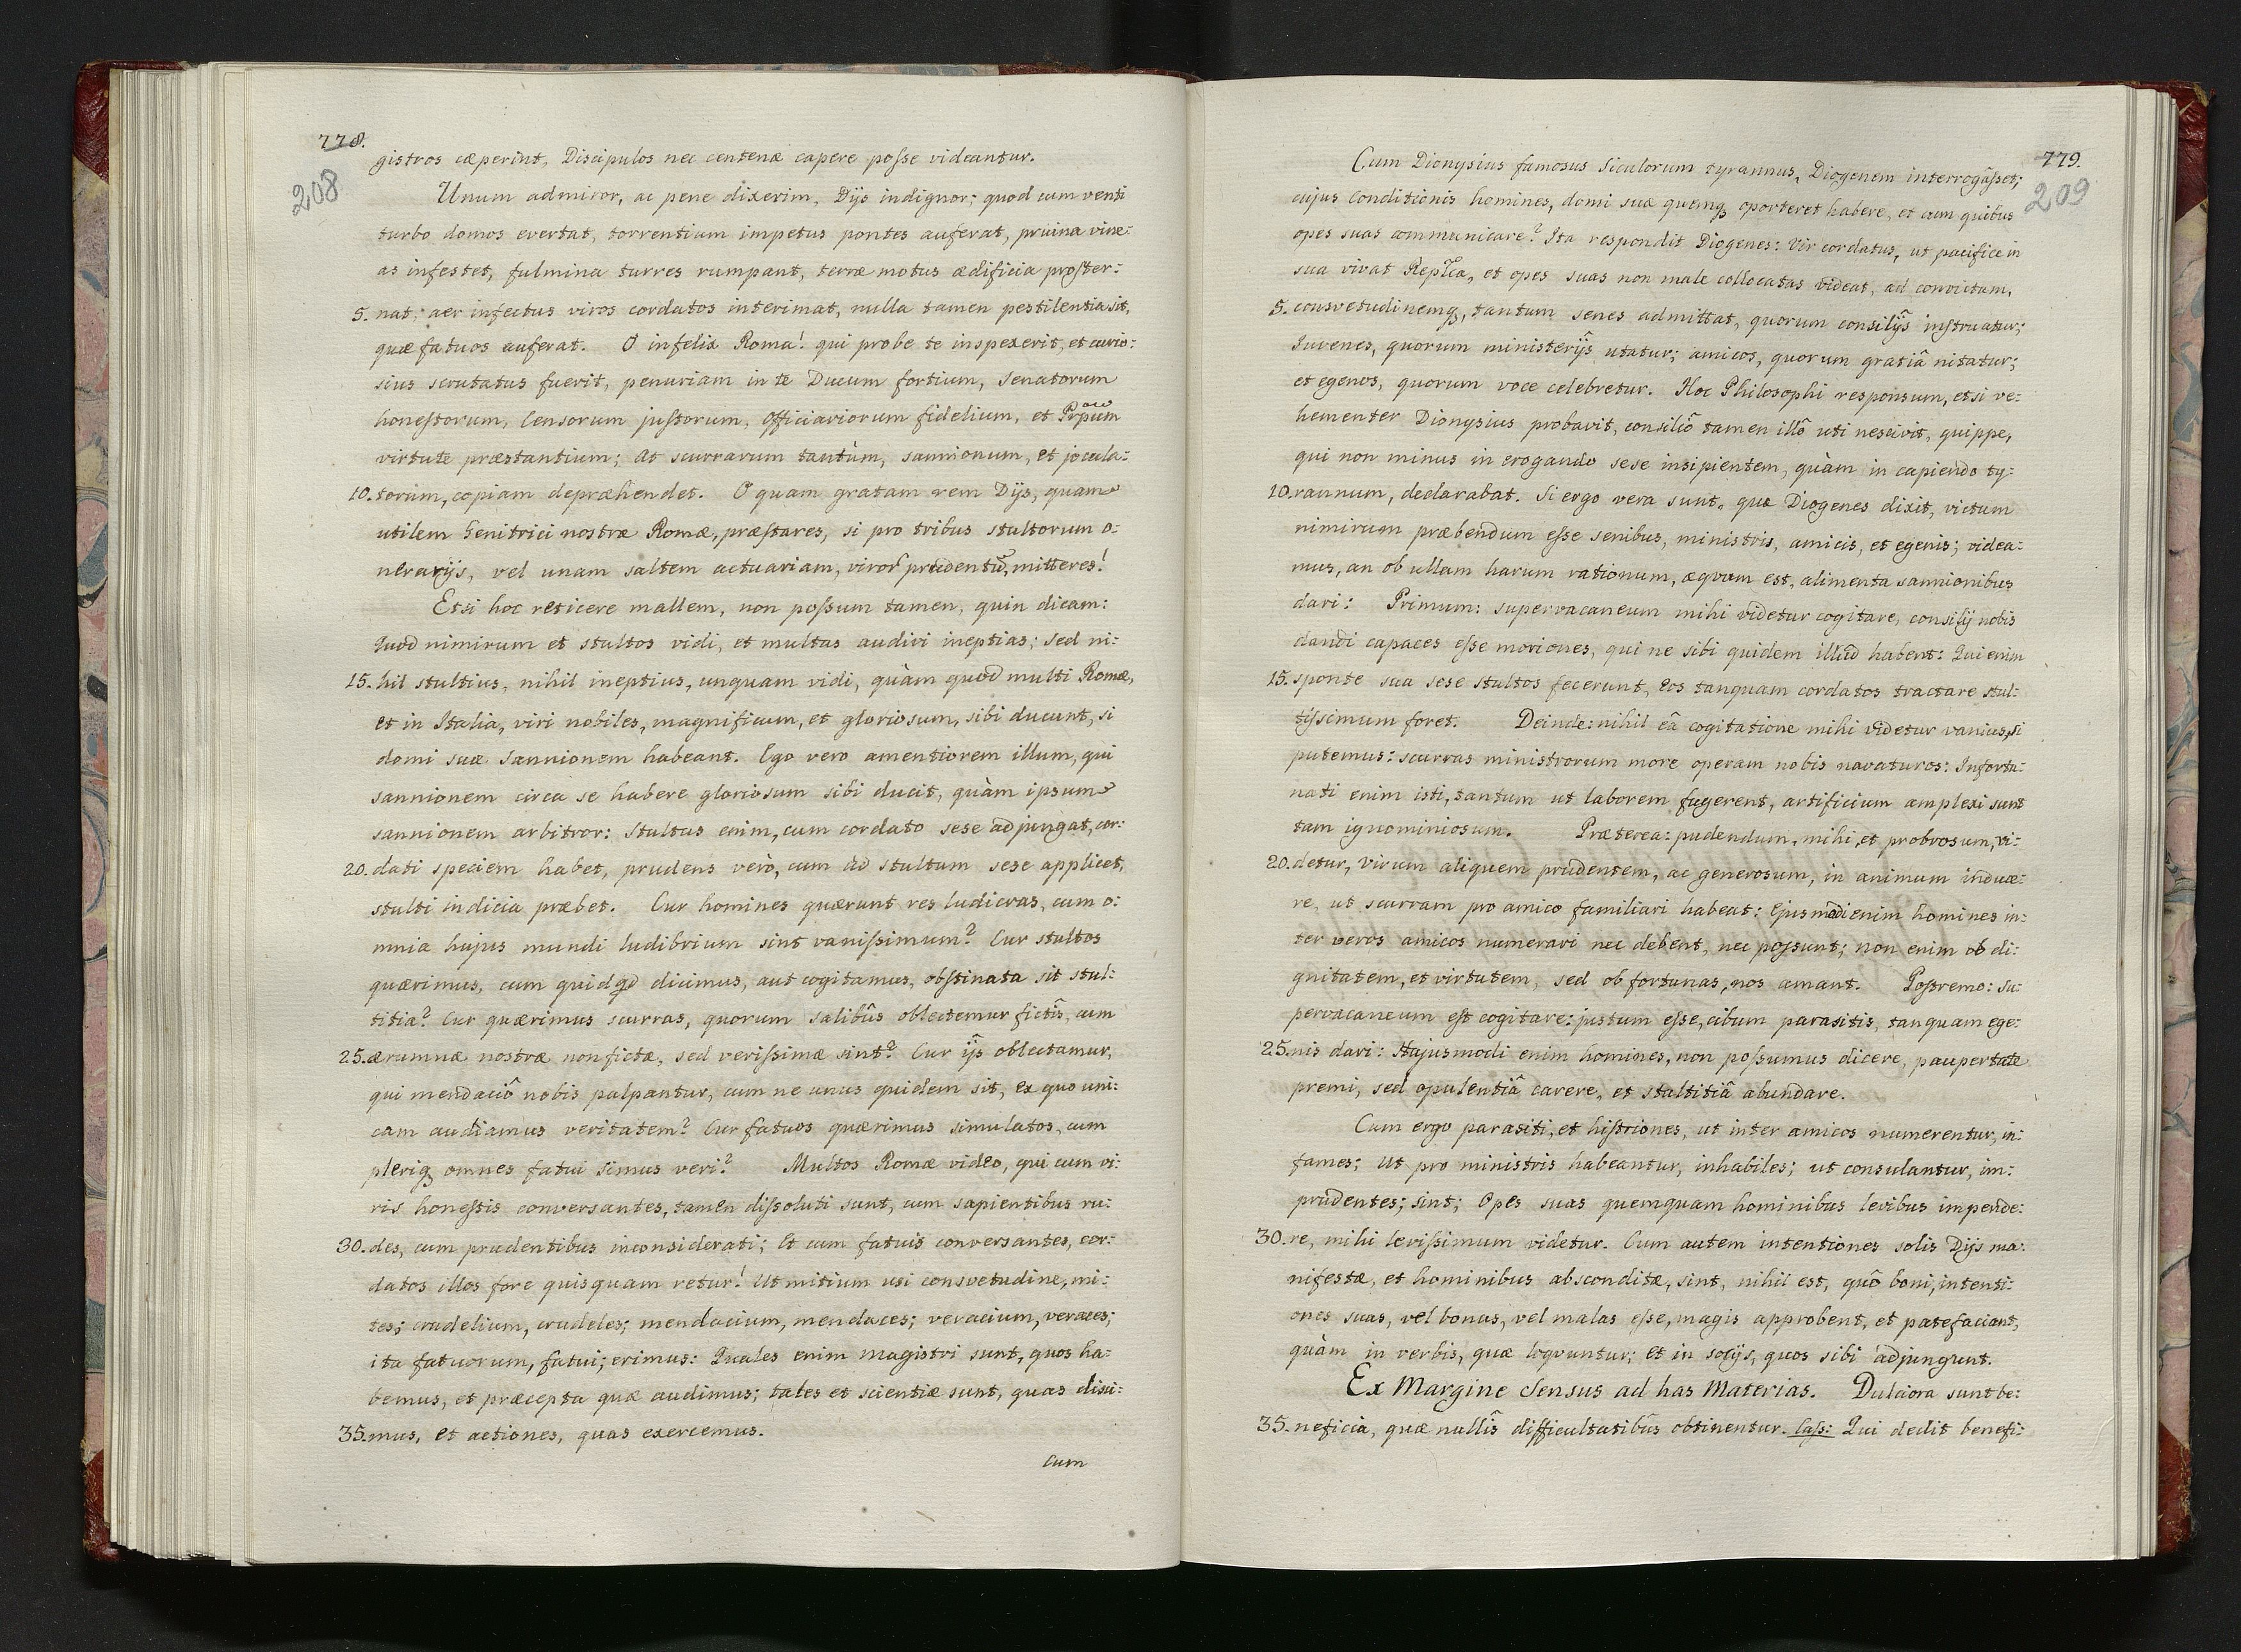 778.
208
gistros cæperint, Discipulos nec centenæ capere poſse videantur.
Unum admiror, ac pene dixerim, Dijs indignor; quod cum venti
turbo domos evertat, torrentium impetus pontes auferat, pruina vine:
as infestet, fulmina turres rumpant, terræ motus ædificia proſter:
5. nat; aer infectus viros cordatos interimat, nulla tamen pestilentia sit,
quæ fatuos auferat. O infelix Roma! qui probe te inspexerit, et curio:
sius scrutatus fuerit, penuriam in te Ducum fortium, Senatorum
honeſtorum, Censorum juſtorum, Officiariorum fidelium, et
virtute præstantium; At scurrarum tantùm, sannionum, et jocula:
10. torum, copiam depræhendet. O quam gratam rem Dijs, quam
utilem Genitrici nostræ Romæ, præſtares, si pro tribus stultorum o:
nerarijs, vel unam saltem actuariam, viror prudentũ, mitteres!
Etsi hoc reticere mallem, non poſsum tamen, quin dicam:
Quod nimirum et stultos vidi, et multas audivi ineptias; sed ni:
15. hil stultius, nihil ineptius, unquam vidi, quàm quod multi Romæ,
et in Italia, viri nobiles, magnificum, et gloriosum, sibi ducunt, si
domi suæ Sannionem habeant. Ego vero amentiorem illum, qui
sannionem circa se habere gloriosum sibi ducit, quàm ipsum
sannionem arbitror: Stultus enim, cum cordato sese adjungat, cor:
20. dati speciem habet, prudens verò, cum ad stultum sese applicet,
stulti indicia præbet. Cur homines quærunt res ludicras, cum o:
mnia hujus mundi ludibrium sint vaniſsimum? Cur stultos
quærimus, cum quidqd dicimus, aut cogitamus, obſtinata sit stul:
titia? Cur quærimus scurras, quorum salibûs oblectemur fictîs, cum
25. ærumnæ nostræ non fictæ, sed veriſsimæ sint? Cur ijs oblectamur,
qui mendaciô nobis palpantur, cum ne unus quidem sit, ex quo uni:
cam audiamus veritatem? Cur fatuos quærimus simulatos, cum
pleriq omnes fatui simus veri? Multos Romæ video, qui cum vi:
ris honeſtis conversantes, tamen diſsoluti sunt, cum sapientibus ru:
30. des, cum prudentibus inconsiderati; Et cum fatuis conversantes, cor:
datos illos fore quisquam retur! Ut mitium usi consvetudine, mi:
tes; crudelium, crudeles; mendacium, mendaces; veracium, veraces;
ita fatuorum, fatui; erimus: Quales enim magistri sunt, quos ha:
bemus, et præcepta quæ audimus; tales et scientiæ sunt, quas disci:
35. mus, et actiones, quas exercemus.
Cum
779.
209
Cum Dionysius famosus Siculorum tyrannus, Diogenem interrogâſset;
cujus Conditionis homines, domi suæ quemq oporteret habere, et cum quibus
opes suas communicare? Ita respondit Diogenes: Vir cordatus, ut pacifice in
sua vivat Replca, et opes suas non male collocatas videat, ad convictum,
5. consvetudinemq, tantum senes admittat, quorum consilijs inſtruatur;
Iuvenes, quorum ministerijs utatur; amicos, quorum gratiâ nitatur;
et egenos, quorum voce celebretur. Hoc Philosophi responsum, etsi ve:
hementer Dionysius probavit, consiliô tamen illô uti nescivit, quippe,
qui non minus in erogando sese insipientem, quàm in capiendo ty:
10. rannum, declarabat. Si ergo vera sunt, quæ Diogenes dixit, victum
nimirum præbendum eſse senibus, ministris, amicis, et egenis; videa:
mus, an ob ullam harum rationum, æqvum est, alimenta sannionibus
dari: Primum: supervacaneum mihi videtur cogitare, consilij nobis
dandi capaces eſse moriones, qui ne sibi quidem illud habent: Qui enim
15. sponte sua sese stultos fecerunt, Eos tanquam cordatos tractare stul:
tiſsimum foret. Deinde: nihil eâ cogitatione mihi videtur vanius, si
putemus: scurras ministrorum more operam nobis navaturos: Infortu:
nati enim isti, tantum ut laborem fugerent, artificium amplexi sunt
tam ignominiosum. Præterea: pudendum, mihi, et probrosum, vi:
20. detur, virum aliquem prudentem, ac generosum, in animum induce:
re, ut scurram pro amico familiari habeat: Ejusmodi enim homines in:
ter veros amicos numerari nec debent, nec poſsunt; non enim ob di:
gnitatem, et virtutem, sed ob fortunas, nos amant. Poſtremo: su:
pervacaneum eſt cogitare: justum eſse, cibum parasitis, tanquam ege:
25. nis dari: Hujusmodi enim homines, non poſsumus dicere, paupertate
premi, sed opulentiâ carere, et stultitiâ abundare.
Cum ergo parasiti, et hiſtriones, ut inter amicos numerentur, in:
fames; Ut pro ministris habeantur, inhabiles; ut consulantur, im:
prudentes; sint; Opes suas quemquam hominibus levibus impende:
30. re, mihi leviſsimum videtur. Cum autem intentiones solis Dijs ma:
nifestæ, et hominibus absconditæ, sint, nihil est, quô boni, intenti:
ones suas, vel bonas, vel malas eſse, magis approbent, et patefaciant,
quàm in verbis, quæ loqvuntur; Et in socijs, quos sibi adjungunt.
Ex Margine Sensus ad has Materias. Dulciora sunt be:
35. neficia, quæ nullîs difficultatibûs obtinentur. Caſs: Qui dedit benefi: